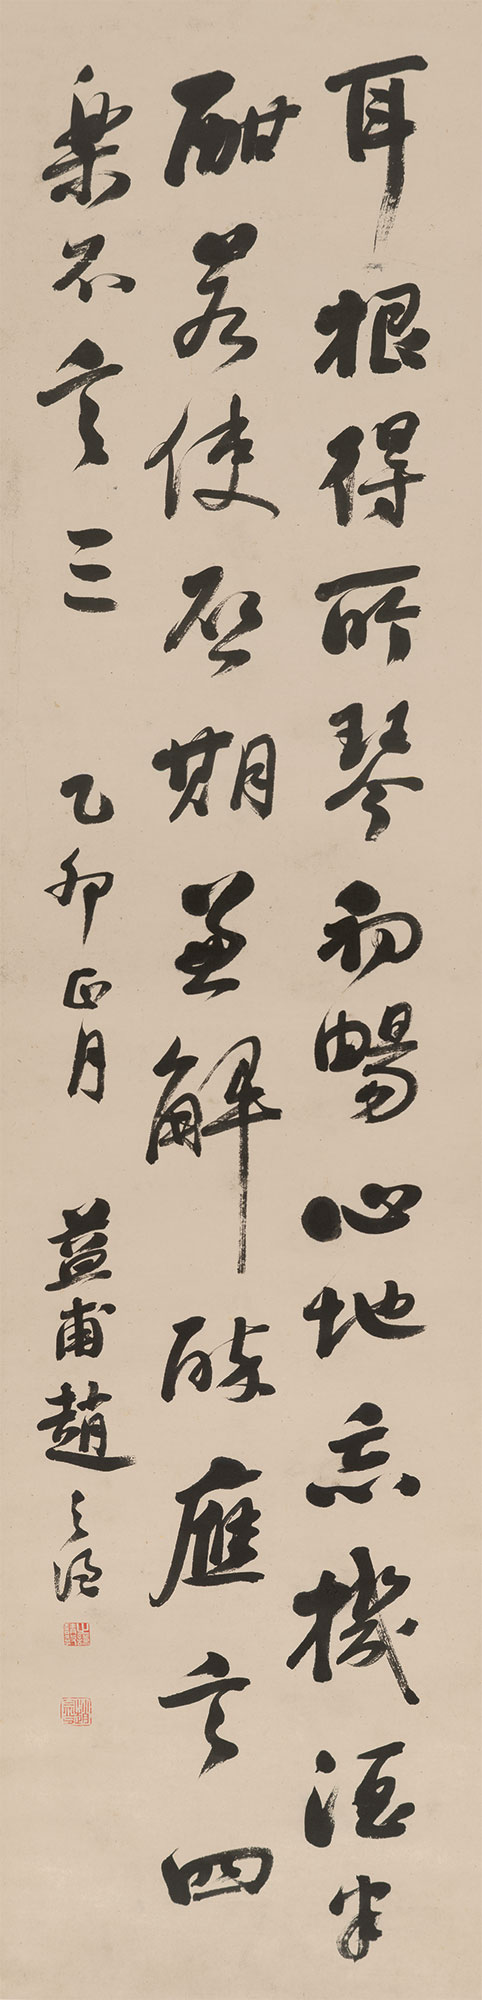 耳根得所琴初暢心地忘機酒半
酣若使啓期兼解醉應言四
樂不言三
乙卯正月
益甫趙之謙